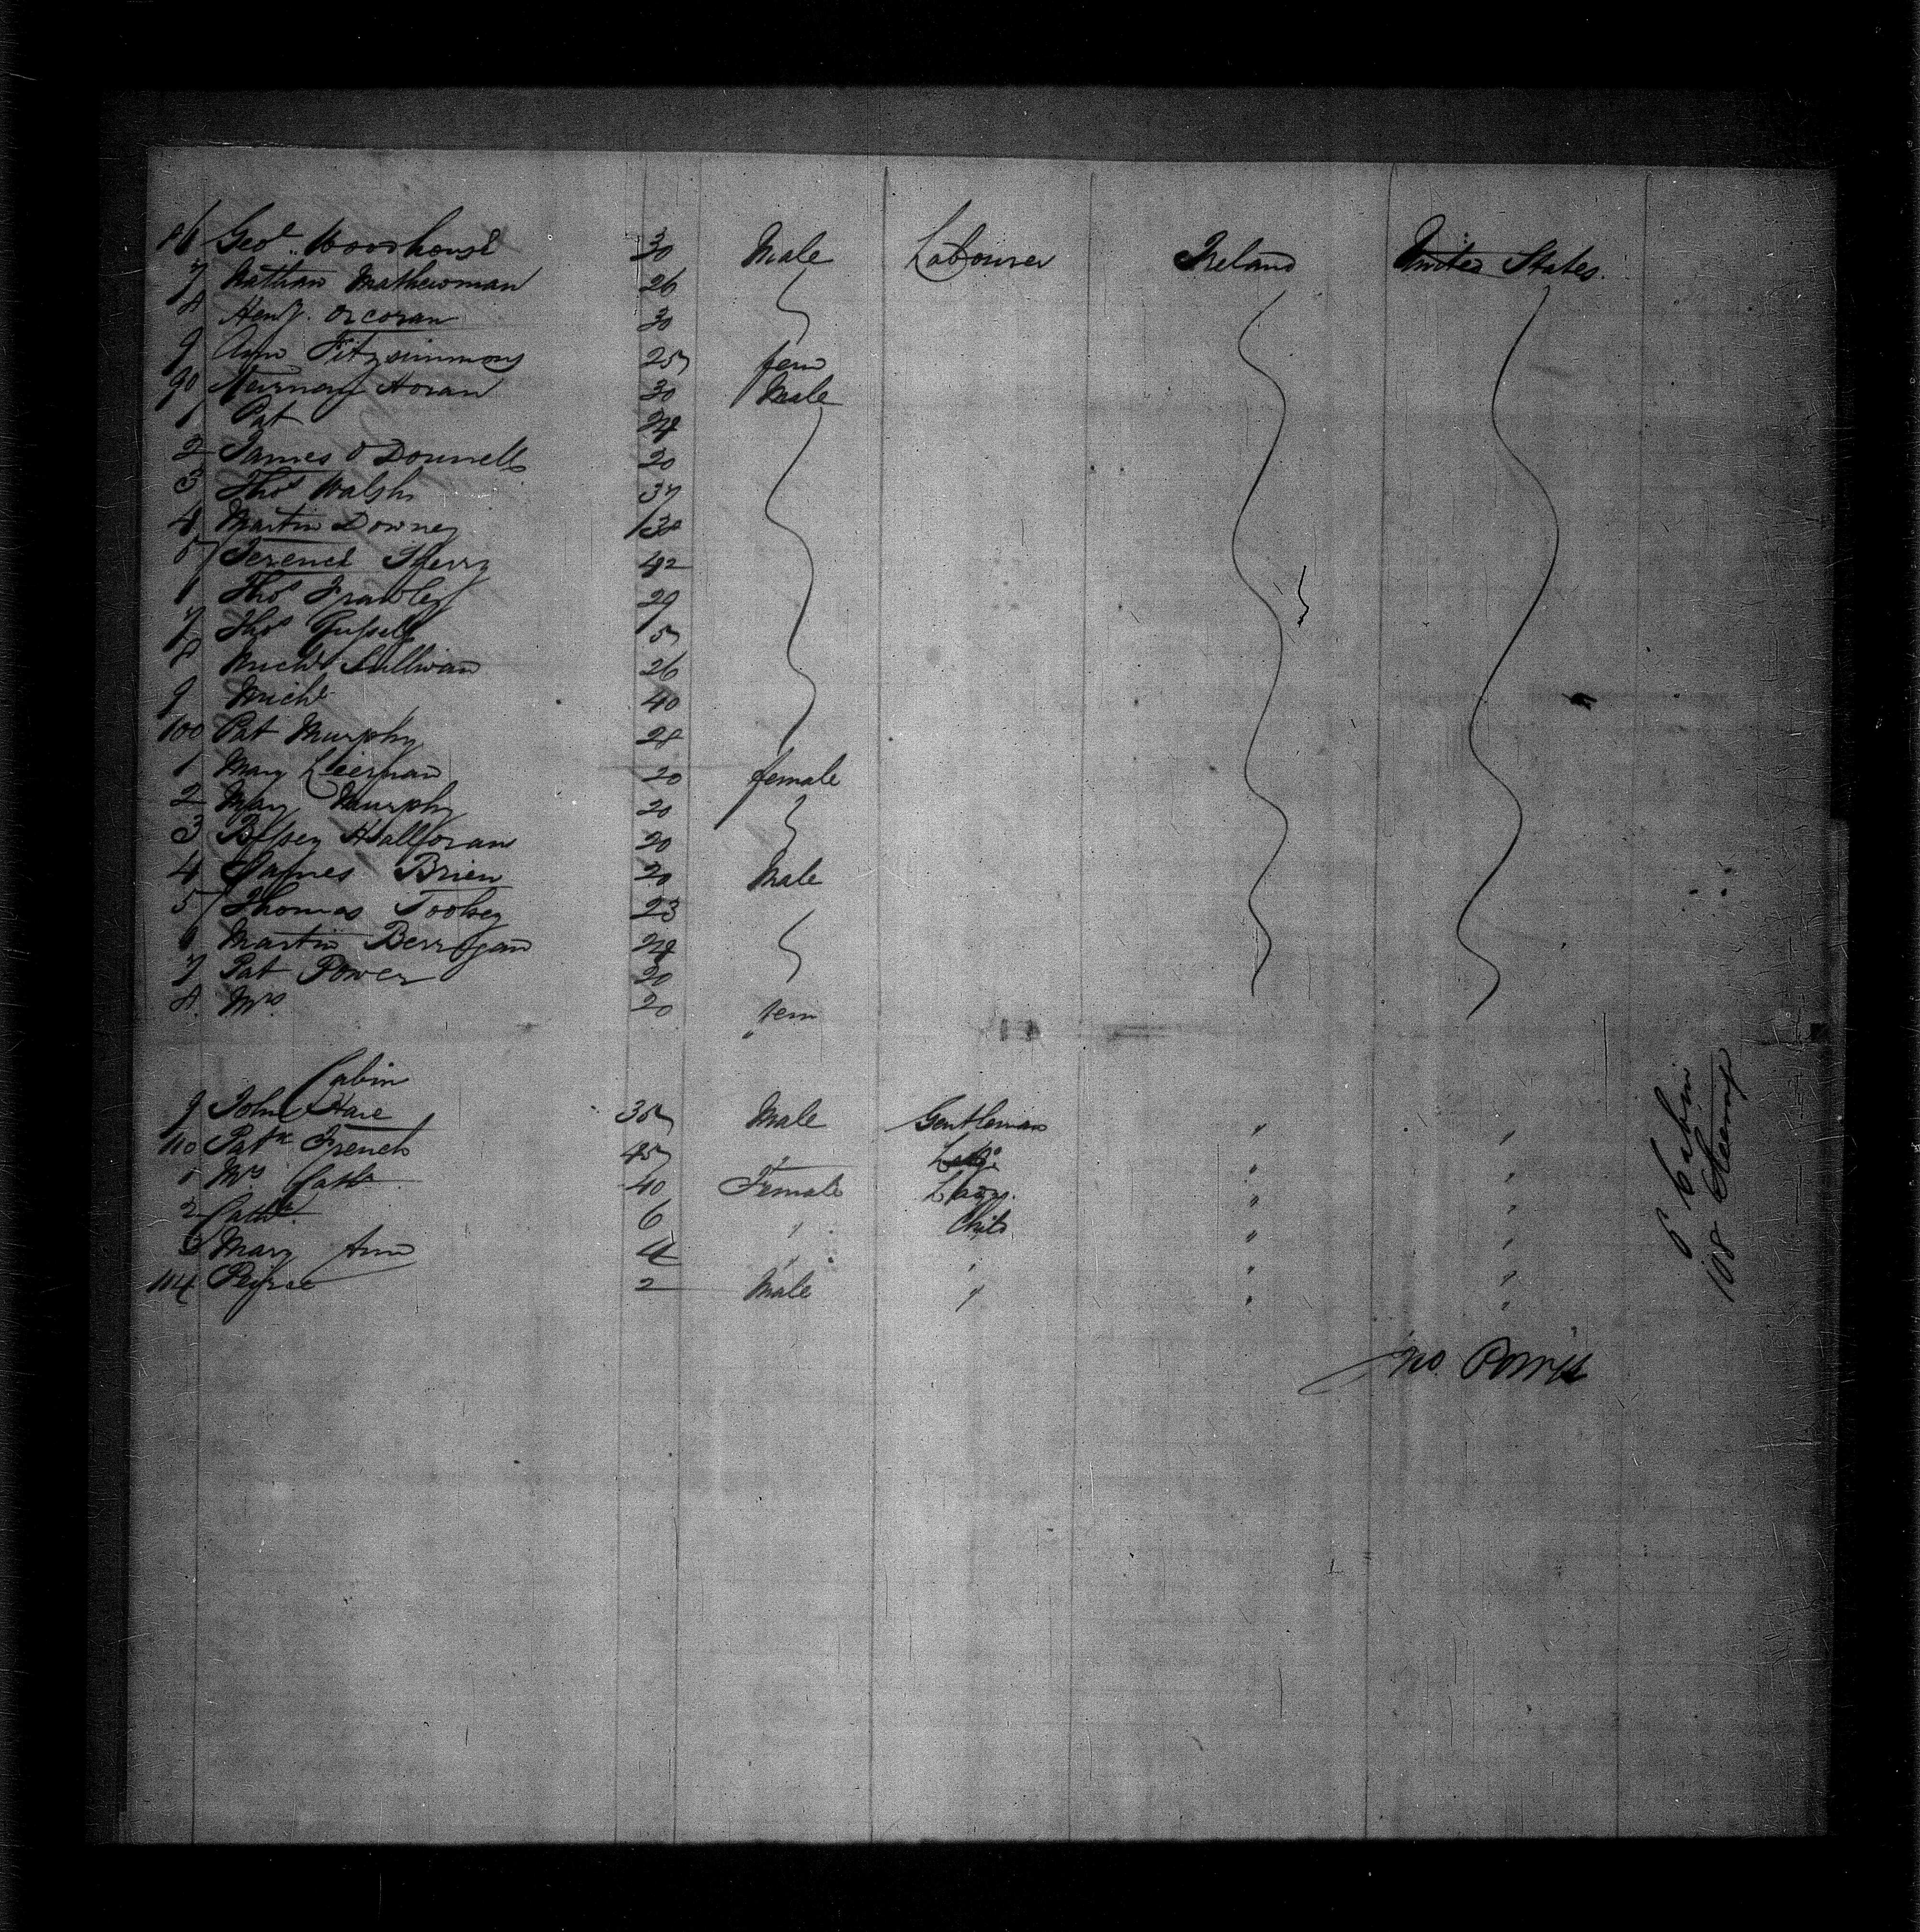 86 Geo. Woodhouse 30 Male Labourer Ireland United States.
7 Nathan Mathewman 26
8 Heny. Corcoran 30
9 Ann Fitzsimmons 25 fem
90 Horan 30 Male
1 Pat 24
2 James O Donnell 20
3 Thos Walsh 37
4 Martin Downey 30
5 Terence Sherry 42
Thos Frawley 29
7 Thos
8 Michl Sullivan 26
9 Michl 40
100 Pat Murphy 28
1 Mary 20 female
2 Mary Murphy 20
3 Betsey Halloran 20
4 James Brien 20 Male
5 Thomas Toohey 23
6 Martin Berrigan 24
7 Pat Power 20
8 Mrs 20 fem
Cabin
9 John Hare 35 Male Gentleman " "
110 Patk French 45 " " "
1 Mrs Cath 40 Female Lady. " "
2 Cath 6 " Child " "
3 Mary Ann 4 " " " "
114 2 Male " " "
Jno
6 Cabin
108 Steerage